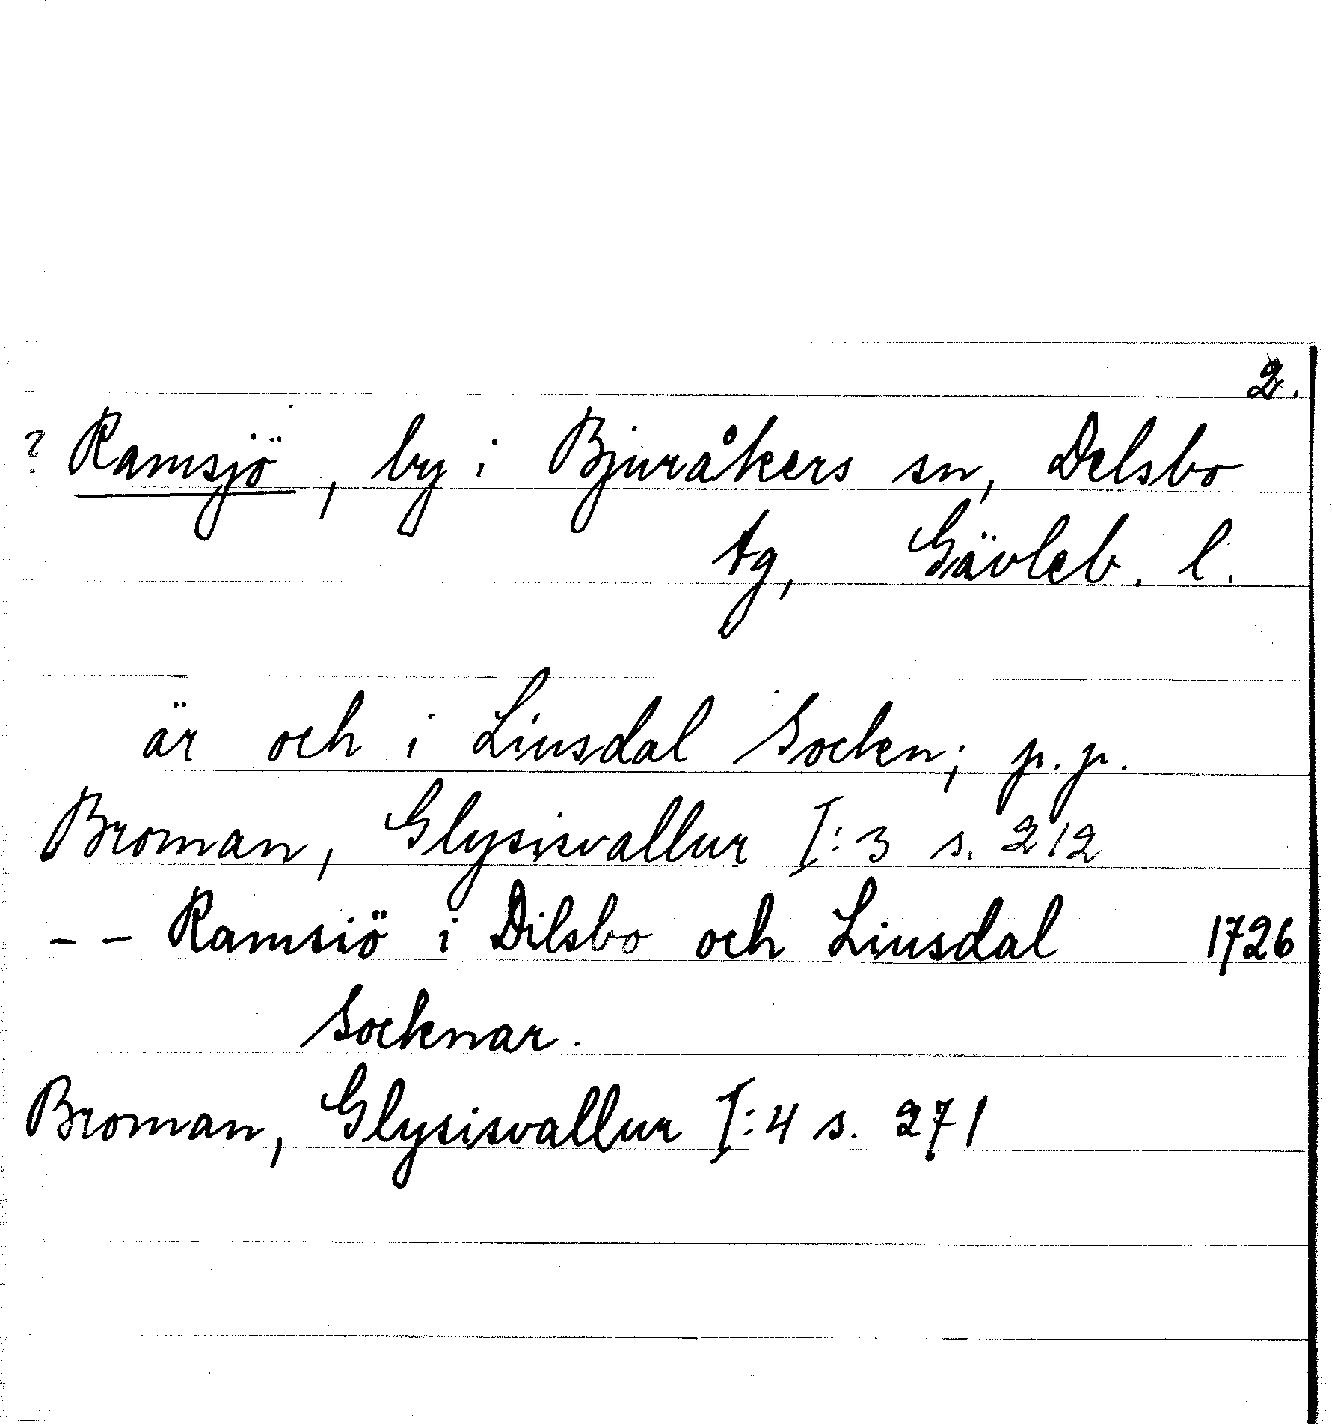 2.
? Ramsjö, by i Bjuråkers sn, Delsbo
tg, Gävleb. l.
är och i Liusdal Socken; p.p.
Broman, Glysisvallur I:3 s. 212
-- Ramsiö i Dilsbo och Liusdal 1726
Socknar.
Broman, Glysisvallur I:4 s. 271